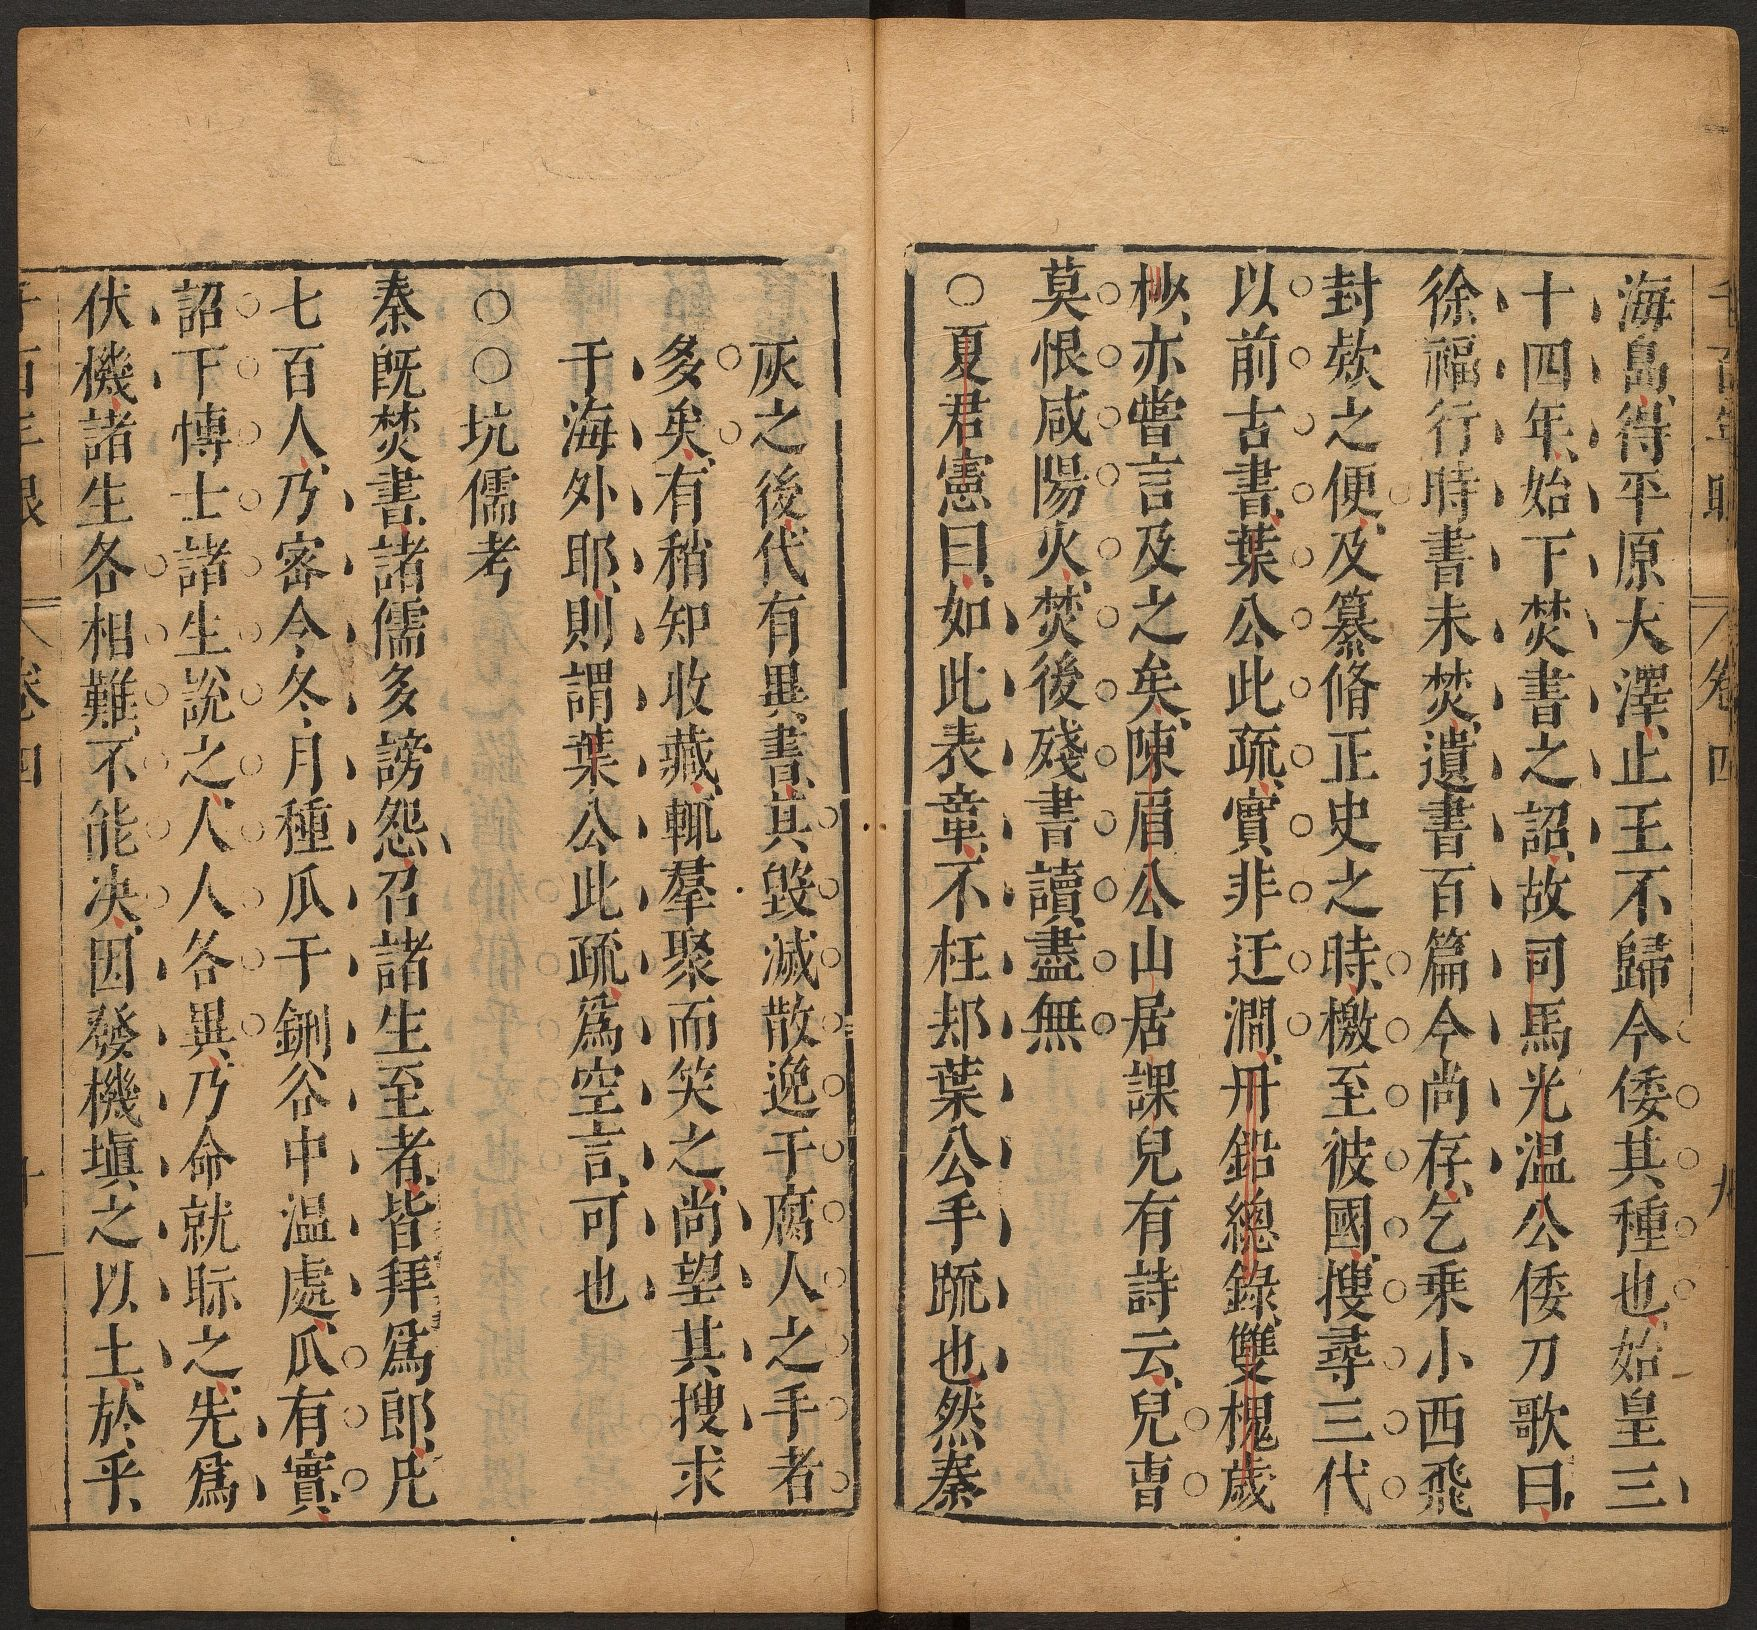 海島得平原大澤止王不歸今倭其種也始皇三
十四年始下焚書之詔故司馬光温公倭刀歌曰
徐福行時書未焚遺書百篇今尚存乞乗小西飛
封欵之便及纂脩正史之時檄至彼國捜尋三代
以前古書葉公此疏實非迂濶丹鉛總錄雙槐歲
杪亦嘗言及之矣陳眉公山居課兒有詩云兒曺
莫恨咸陽火焚後殘書讀盡無
○夏君憲曰如此表章不枉却葉公手䟽也然秦
灰之後代有異書其毀滅散逸于腐人之手者
多矣有稍知收藏輒羣聚而笑之尚望其搜求
于海外耶則謂葉公此疏爲空言可也
○○坑儒考
秦既焚書諸儒多謗怨召諸生至者皆拜爲郎凡
七百人乃密令冬月種瓜于鉶谷中温處瓜有實
詔下博士諸生說之人人各異乃命就眎之先爲
伏機諸生各相難不能决因發機塡之以土於乎
卷四